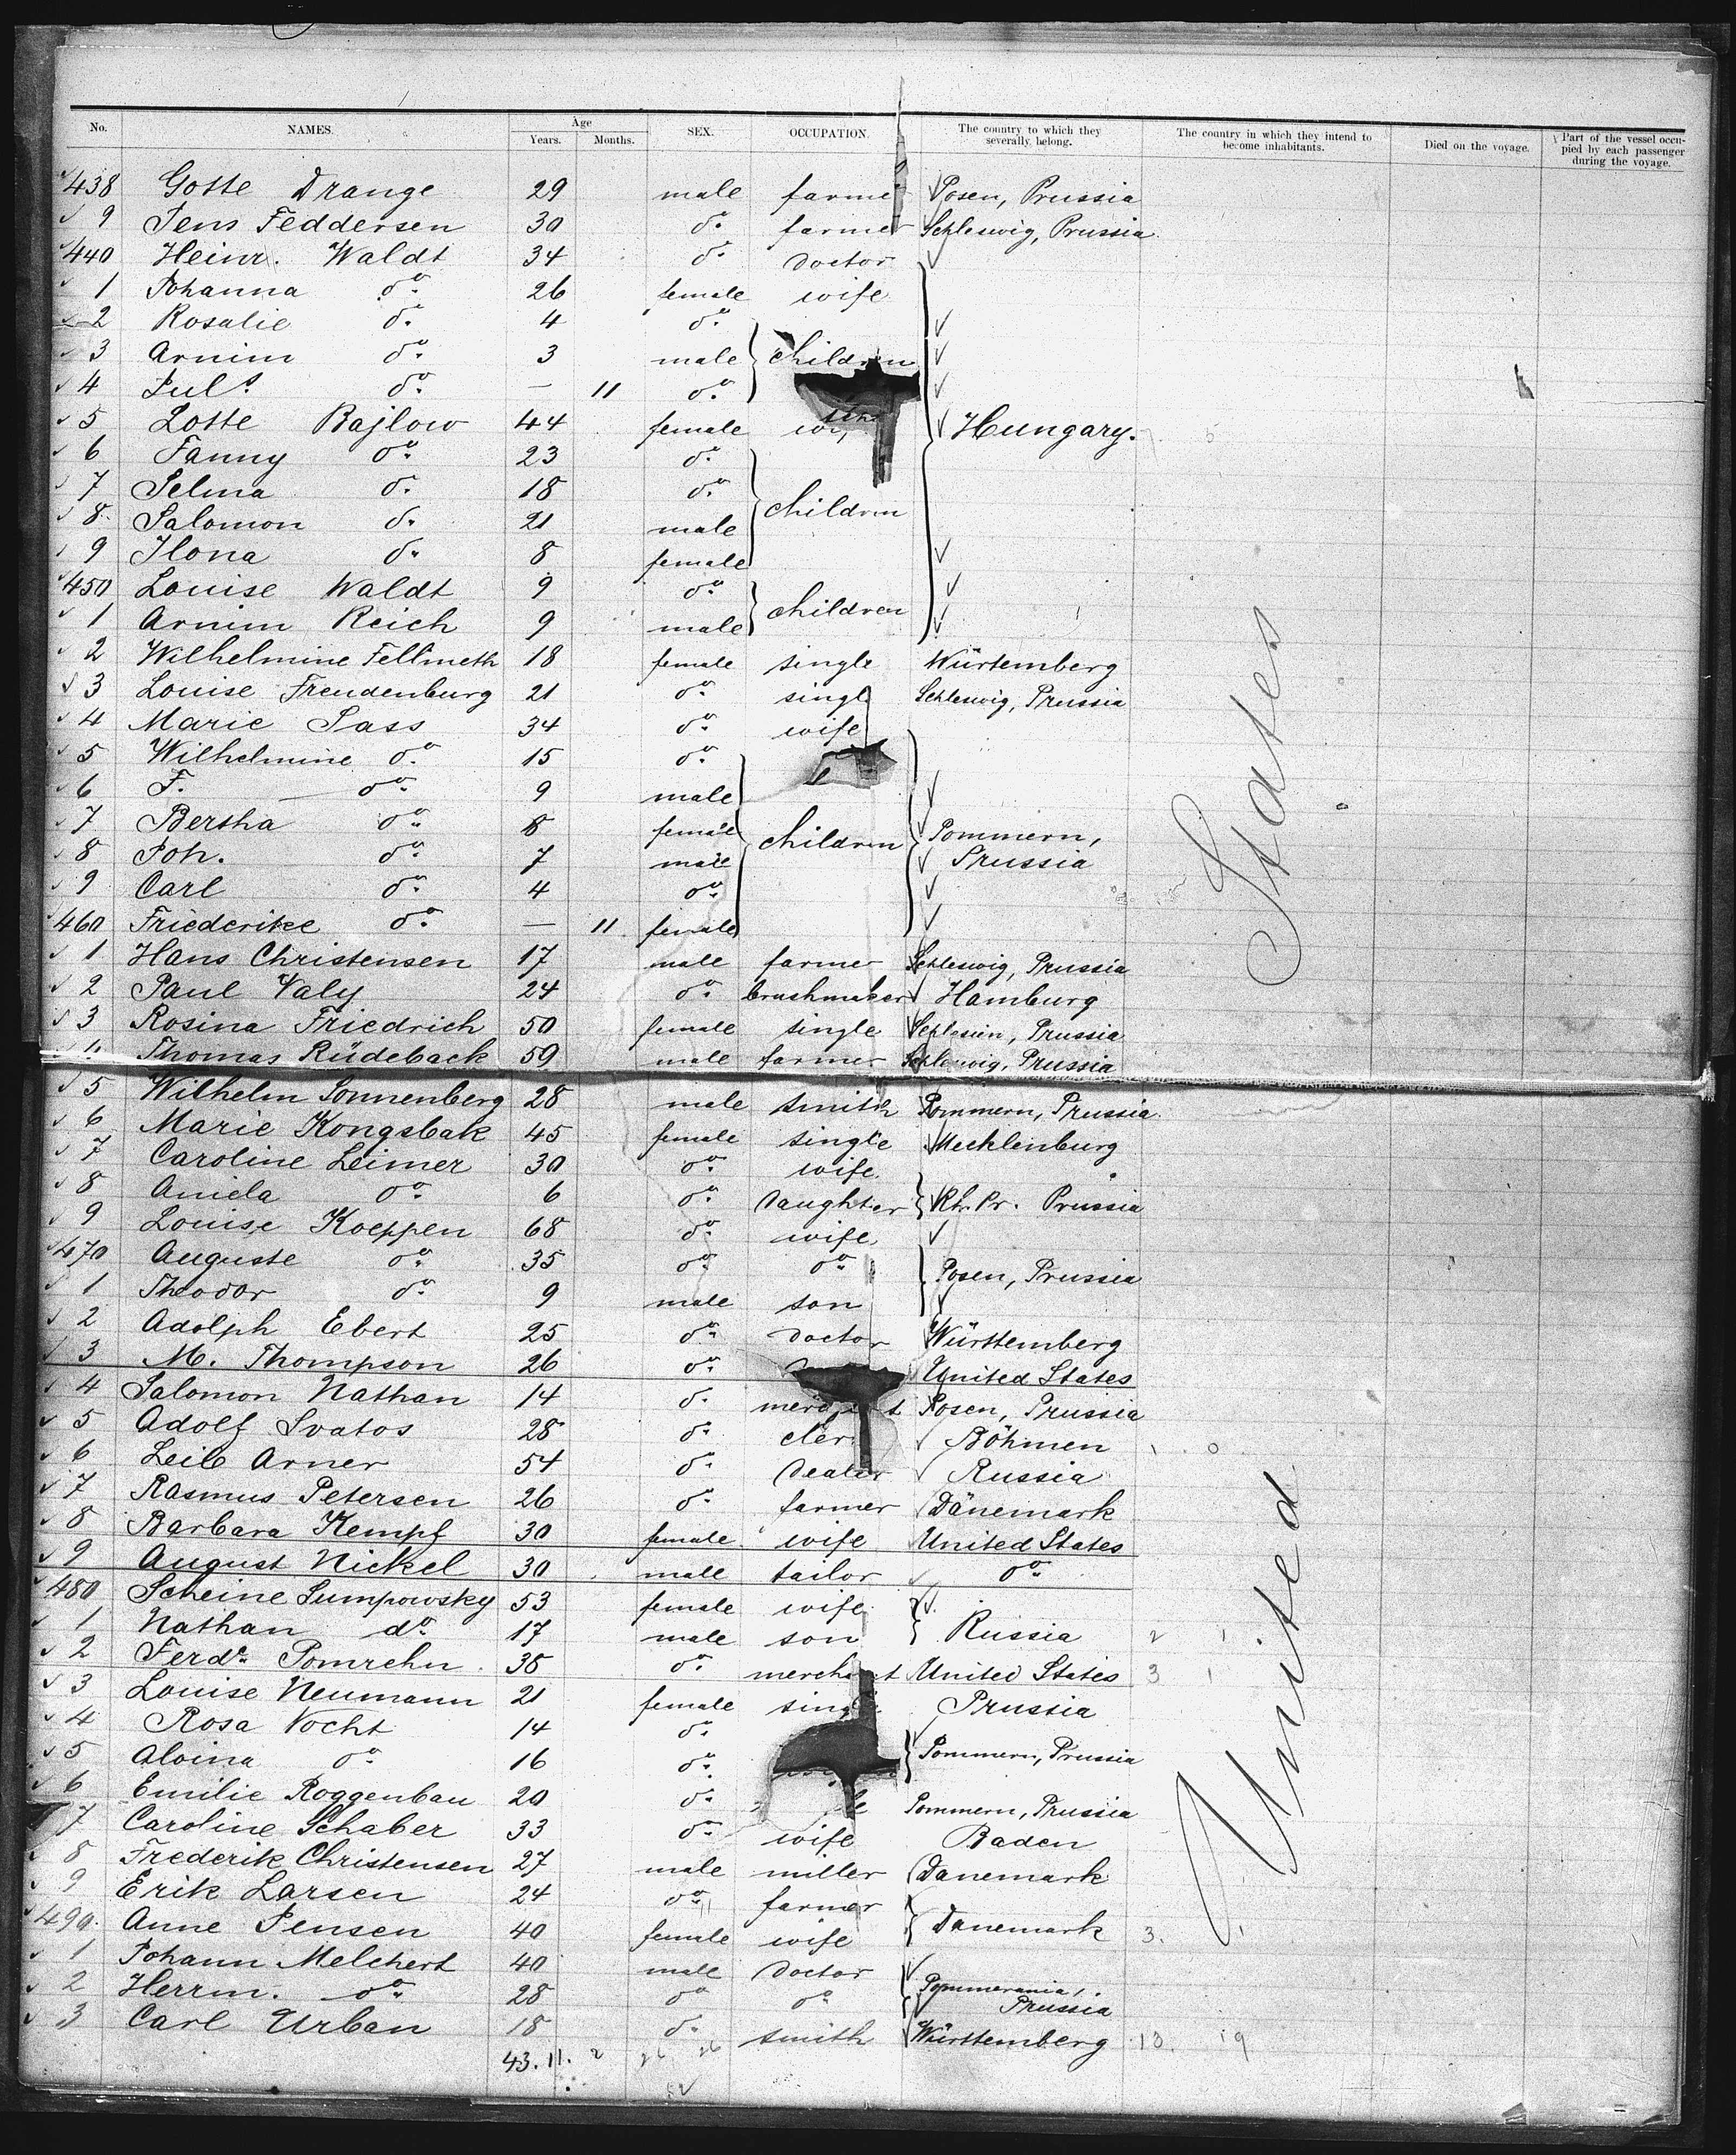 No. NAMES. Age Years. Months. SEX. OCCUPATION. The country to which they severally belong. The country in which they intend to become inhabitants. Died on the voyage. Part of the vessel occupied by each passenger during the voyage.
438 Gotte Drange 29 male farmer Posen, Prussia
9 Jens Feddersen 30 do. farmer Schleswig, Prussia
440 Heinr. Waldt 34 do. Doctor
1 Johanna do. 26 female wife
2 Rosalie do. 4 do.
3 Arnim do. 3 male children
4 Juls. do. — 11 do.
5 Lotte Bajlow 44 female Hungary.
6 Fanny do. 23 do.
7 Selma do. 18 do.
8 Salomon do. 21 male children
9 Ilona do. 8 female
450 Louise Waldt 9 do.
1 Arnim Reich 9 male children
2 Wilhelmine Fellmeth 18 female single Würtemberg
3 Louise Freudenburg 21 do. single Schleswig, Prussia
4 Marie Sass 34 do. wife
5 Wilhelmine do. 15 do.
6 F. — do. 9 male
7 Bertha do. 8 female children Pommern,
8 Joh. do. 7 male Prussia
9 Carl do. 4 do.
460 Friederike do. — 11 female
1 Hans Christensen 17 male farmer Schleswig, Prussia
2 Paul Valy 24 do. brushmaker Hamburg
3 Rosina Friedrich 50 female single Schlesien, Prussia
4 Thomas Rüdeback 59 male farmer Schleswig, Prussia
5 Wilhelm Sonnenberg 28 male smith Pommern, Prussia
6 Marie Kongsbak 45 female single Mecklenburg
7 Caroline Leimer 30 do. wife
8 Aniela do. 6 do. Daughter Rh. Pr. Prussia
9 Louise Koeppen 68 do. wife
470 Auguste do. 35 do. do. Posen, Prussia
1 Theodor do. 9 male son
2 Adolph Ebert 25 do. Doctor Württemberg
3 M. Thompson 26 do. United States
4 Salomon Nathan 14 do. Posen, Prussia
5 Adolf Svatos 28 do. Böhmen
6 Leib Arner 54 do. Dealer Russia
7 Rasmus Petersen 26 do. farmer Dänemark
8 Barbara Kempf 30 female wife United States
9 August Nickel 30 male tailor do.
480 Scheine Lumpowsky 53 female wife
1 Nathan do. 17 male son Russia 2 1
2 Ferd. Pomrehn 38 do. merchant United States 3 1
3 Louise Neumann 21 female single Prussia
4 Rosa Vocht 14 do.
5 Alvina do. 16 do. Pommern, Prussia
6 Emilie Roggenbau 20 do. Pommern, Prussia
7 Caroline Schaber 33 do. wife Baden
8 Frederik Christensen 27 male miller Danemark
9 Erik Larsen 24 do. farmer
490 Anne Jensen 40 female wife Danemark 3.
1 Johann Melchert 40 male Doctor
2 Herrm. do. 28 do. do. Pommerania, Prussia
3 Carl Urban 18 do. smith Württemberg 13. 19
43. 11. 2 26 26
52
United States